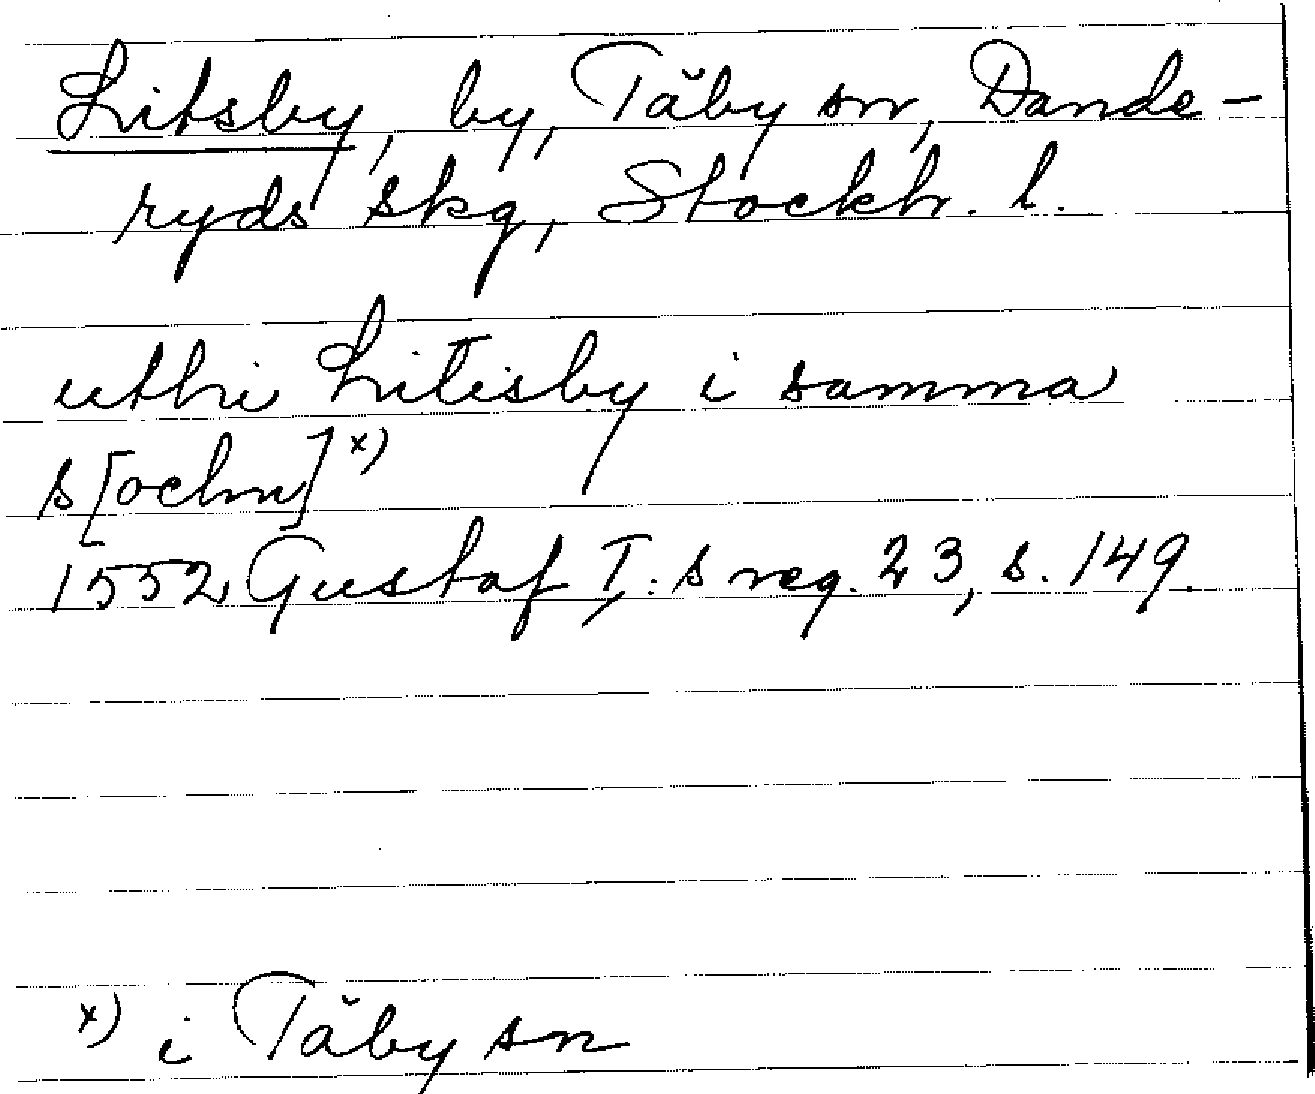 Litsby, by, Täby sn, Dande-
ryds skg, Stockh. l.
uthi Litisby i samma
s[ochn] x)
1552 Gustaf I:s reg. 23, s. 149.
x) i Täby sn